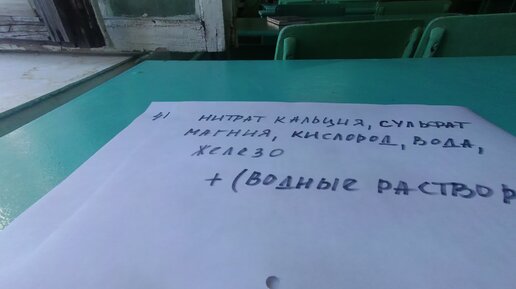 №1 НИТРАТ КАЛЬЦИЯ, СУЛЬФАТ
МАГНИЯ, КИСЛОРОД, ВОДА,
ЖЕЛЕЗО
+ (ВОДНЫЕ РАСТВОР